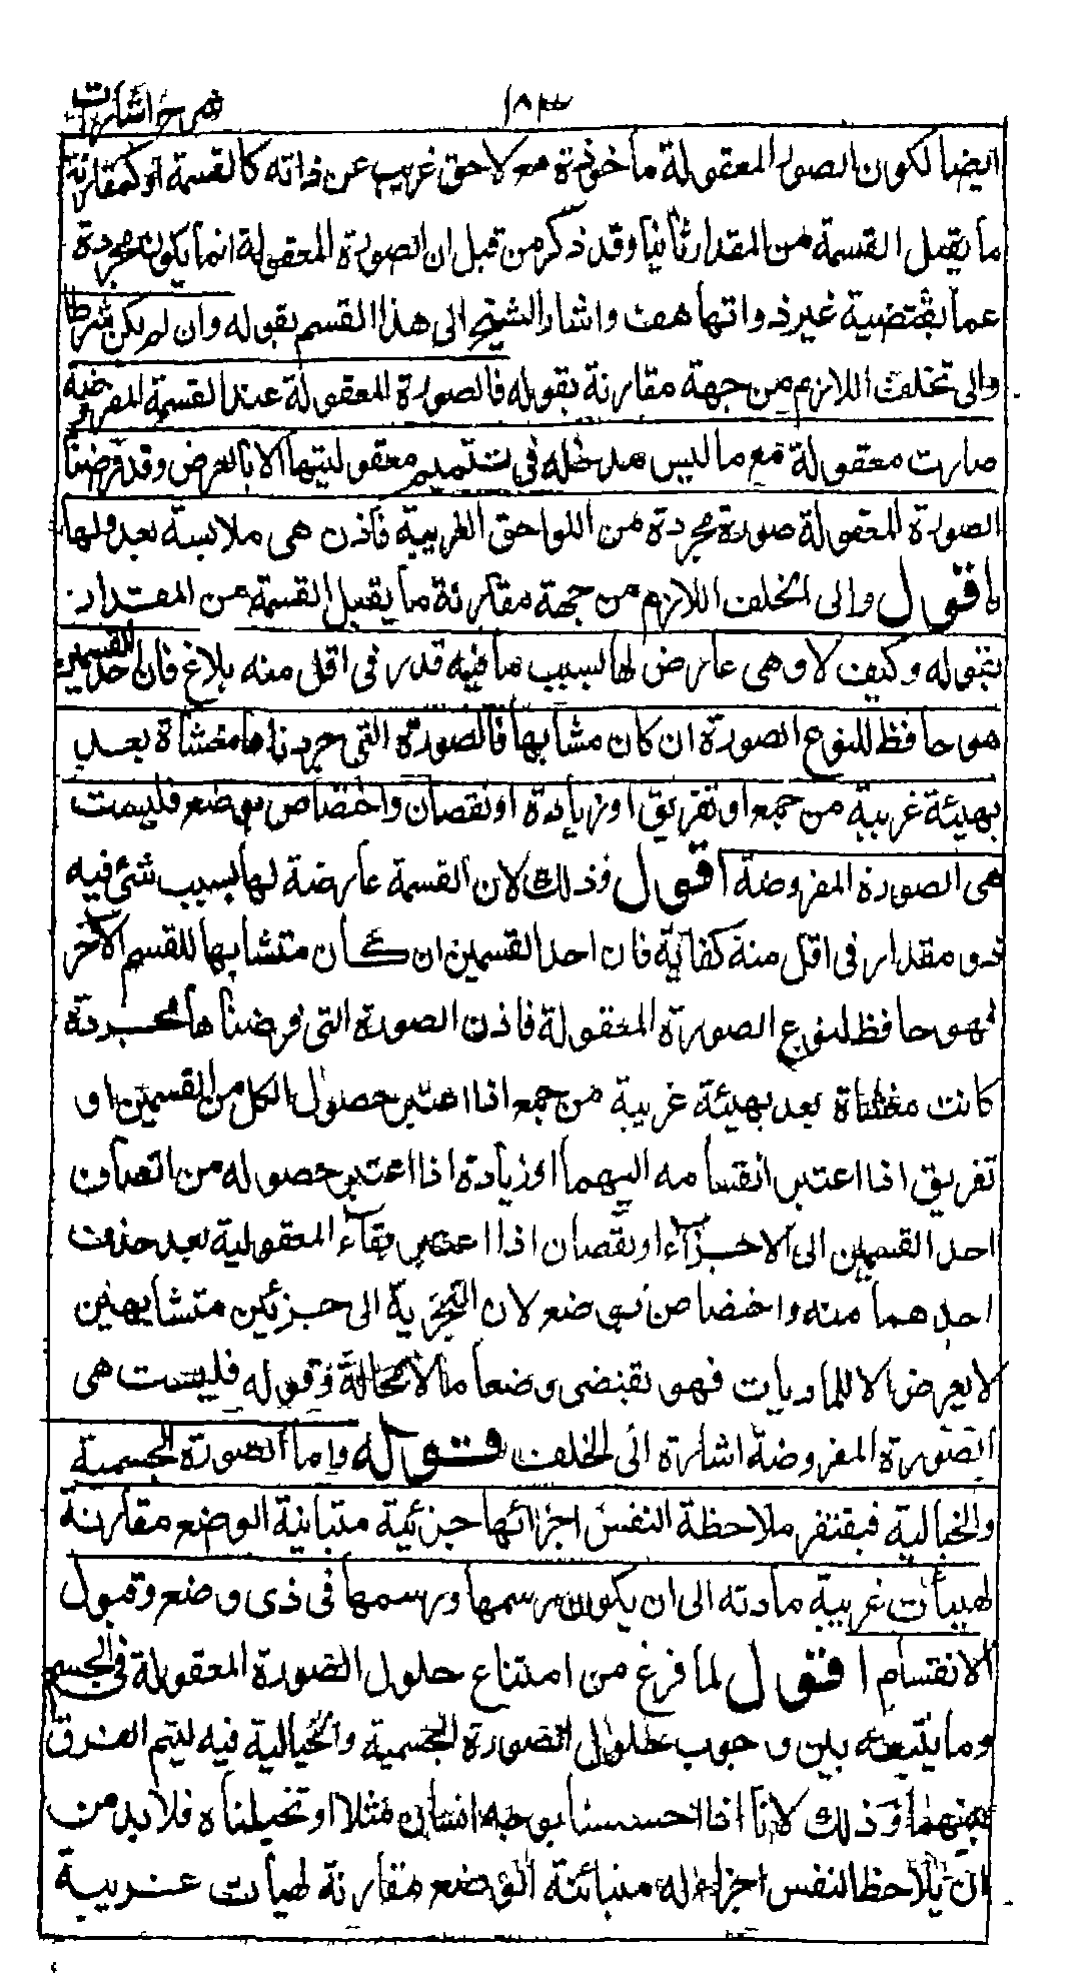 شرح اشارات
١٨٣
ايضا لكون الصور المعقولة ماخوذة مع لاحق غريب عن ذاته كالقسمة او كمقارنة
ما يقبل القسمة من المقدار ثانيا وقد ذكر من قبل ان الصورة المعقولة انما يكون مجردة
عما يقتضية غير ذواتها هف واشار الشيخ الى هذا القسم بقوله وان لم يكن شرطا
والى تخلف اللازم من جهة مقارنة بقوله فالصورة المعقولة عند القسمة المفروضة
صارت معقولة مع ما ليس مدخله فى تتميم معقوليتها الا بالعرض وقد فرضنا
الصورة المعقولة صورة مجردة من اللواحق الغريبة فاذن هى ملابسة بعد لها
اقول والى الخلف اللازم من جهة مقارنة ما يقبل القسمة من المقدار
بقوله وكيف لا وهى عارض لها بسبب ما فيه قدر فى اقل منه بلاغ فان احد القسمين
هو حافظ للنوع الصورة ان كان مشابها فالصورة التى جردناها مغشاة بعد
بهيئة غريبة من جمع او تفريق او زيادة او نقصان واختصاص بوضع فليست
هى الصورة المفروضة اقول وذلك لان القسمة عارضة لها بسبب شئ فيه
ذو مقدار فى اقل منه كفاية فان احد القسمين ان كان متشابها للقسم الآخر
فهو حافظ لنوع الصورة المعقولة فاذن الصورة التى فرضناها مجردة
كانت مغشاة بعد بهيئة غريبة من جمع اذا اعتبر حصول الكل من القسمين او
تفريق اذا اعتبر انقسامه اليهما او زيادة اذا اعتبر حصوله من انضياف
احد القسمين الى الاجزآء او نقصان اذا اعتبر بقآء المعقولية بعد حذف
احدهما منه واختصاص بوضع لان التجزية الى جزئين متشابهين
لا يعرض الا للماديات فهو يقتضى وضعا ما لا محالة وقوله فليست هى
الصورة المفروضة اشارة الى الخلف قوله واما الصورة الجسمية
والخيالية فيفتقر ملاحظة النفس اجزائها جزئية متباينة الوضع مقارنة
لهيبأت غريبة مادته الى ان يكون رسمها ورسمها فى ذى وضع وقبول
الانقسام اقول لما فرغ من امتناع حلول الصورة المعقولة فى الجسم
وما يتبعه بين وجوب حلول الصورة الجسمية والخيالية فيه ليتم الفرق
بينهما وذلك لانا اذا احسسنا بوجه انسان مثلا او تخيلناه فلا بد من
ان يلاحظ النفس اجزاء له متبائنة الوضع مقارنة لهيأت غريبة